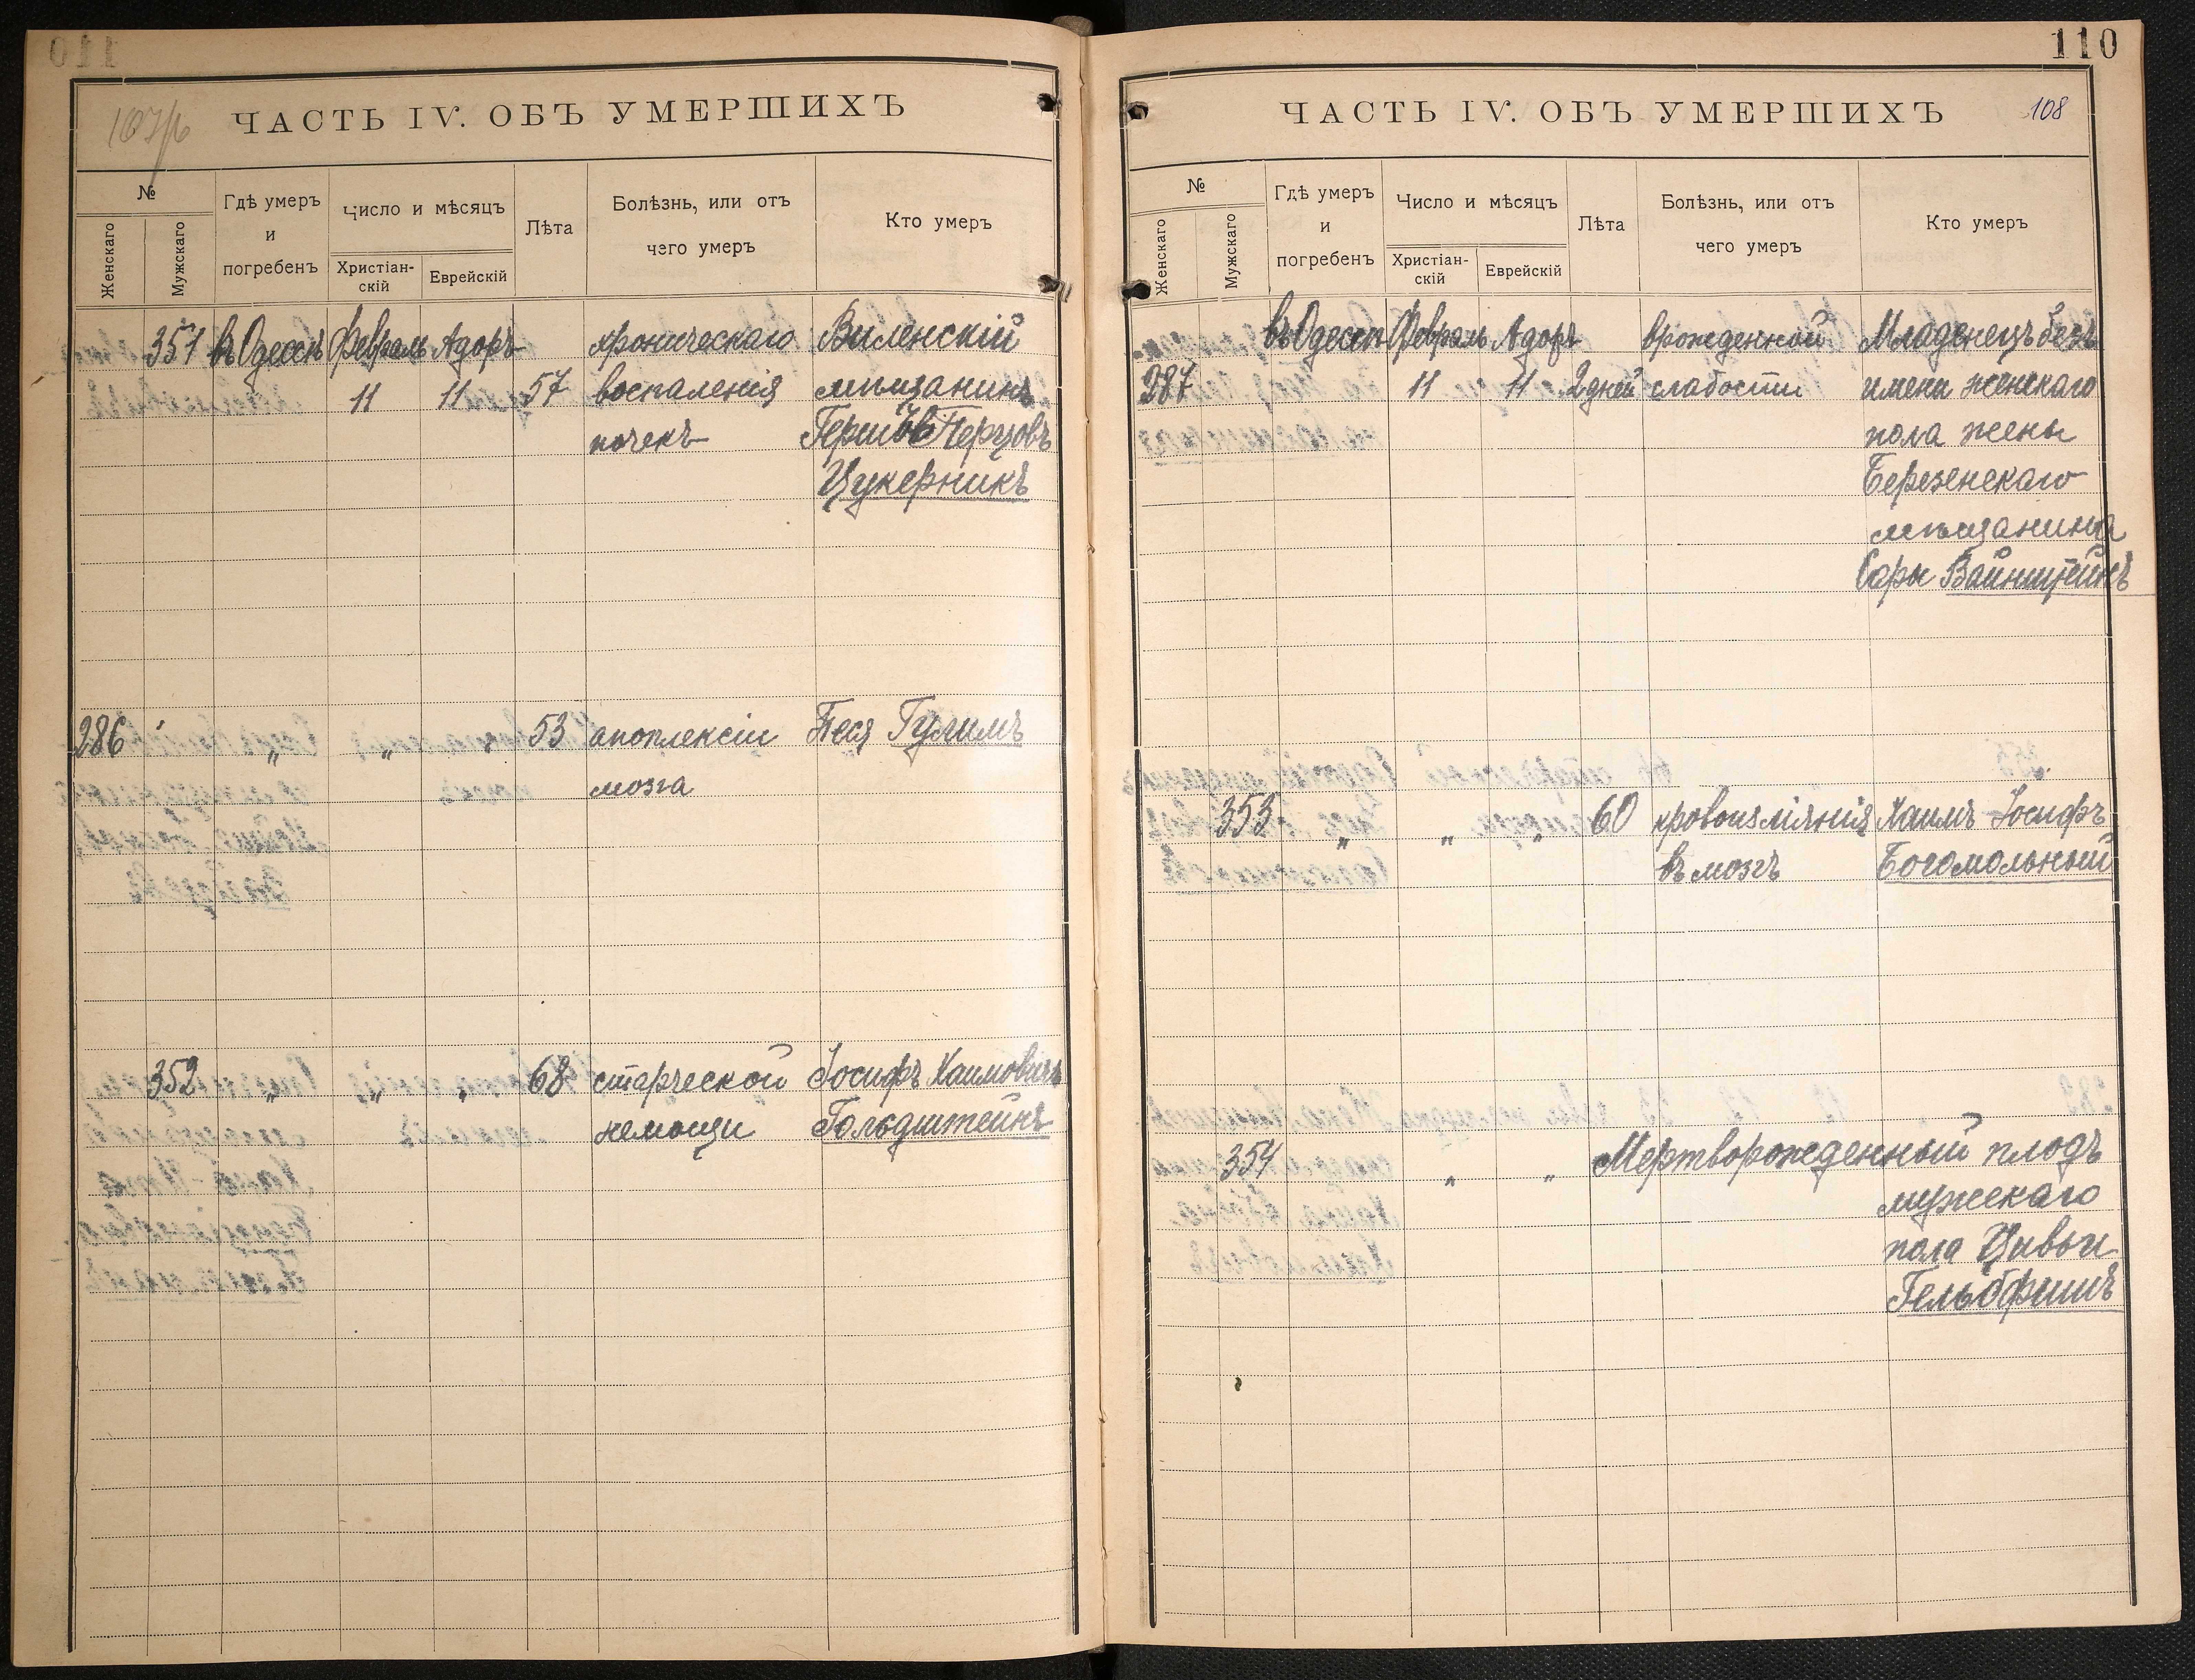 110
ЧАСТЬ IV. ОБЪ УМЕРШИХЪ
№
Женскаго
Мужскаго
Гдѣ умеръ
и
погребенъ
Число и мѣсяцъ
Христіан-
скій
Еврейскій
Лѣта
Болѣзнь, или отъ
чего умеръ
Кто умеръ
351 въ Одессѣ Февраль Адоръ хроническаго Виленскій
11 11 57 воспаленія мѣщанинъ
почекъ Перцовъ
Цукерникъ
286 „ „ „ 53 апоплексіи Песя
мозга
352 „ „ „ 68 старческой Іосифъ Хаимовичъ
немощи Гольдштейнъ
110
ЧАСТЬ IV. ОБЪ УМЕРШИХЪ 108
№
Женскаго
Мужскаго
Гдѣ умеръ
и
погребенъ
Число и мѣсяцъ
Христіан-
скій
Еврейскій
Лѣта
Болѣзнь, или отъ
чего умеръ
Кто умеръ
въ Одессѣ Февраль Адоръ врожденной Младенецъ безъ
287 11 11 2 дней слабости имени женскаго
пола жены
Березенскаго
мѣщанина
Сары Вайнштейнъ
353 „ „ „ 60 кровоизліянія Хаимъ-Іосифъ
въ мозгъ Богомольный
354 „ „ Мертворожденный плодъ
мужескаго
пола Цивьи
Гельбфишъ